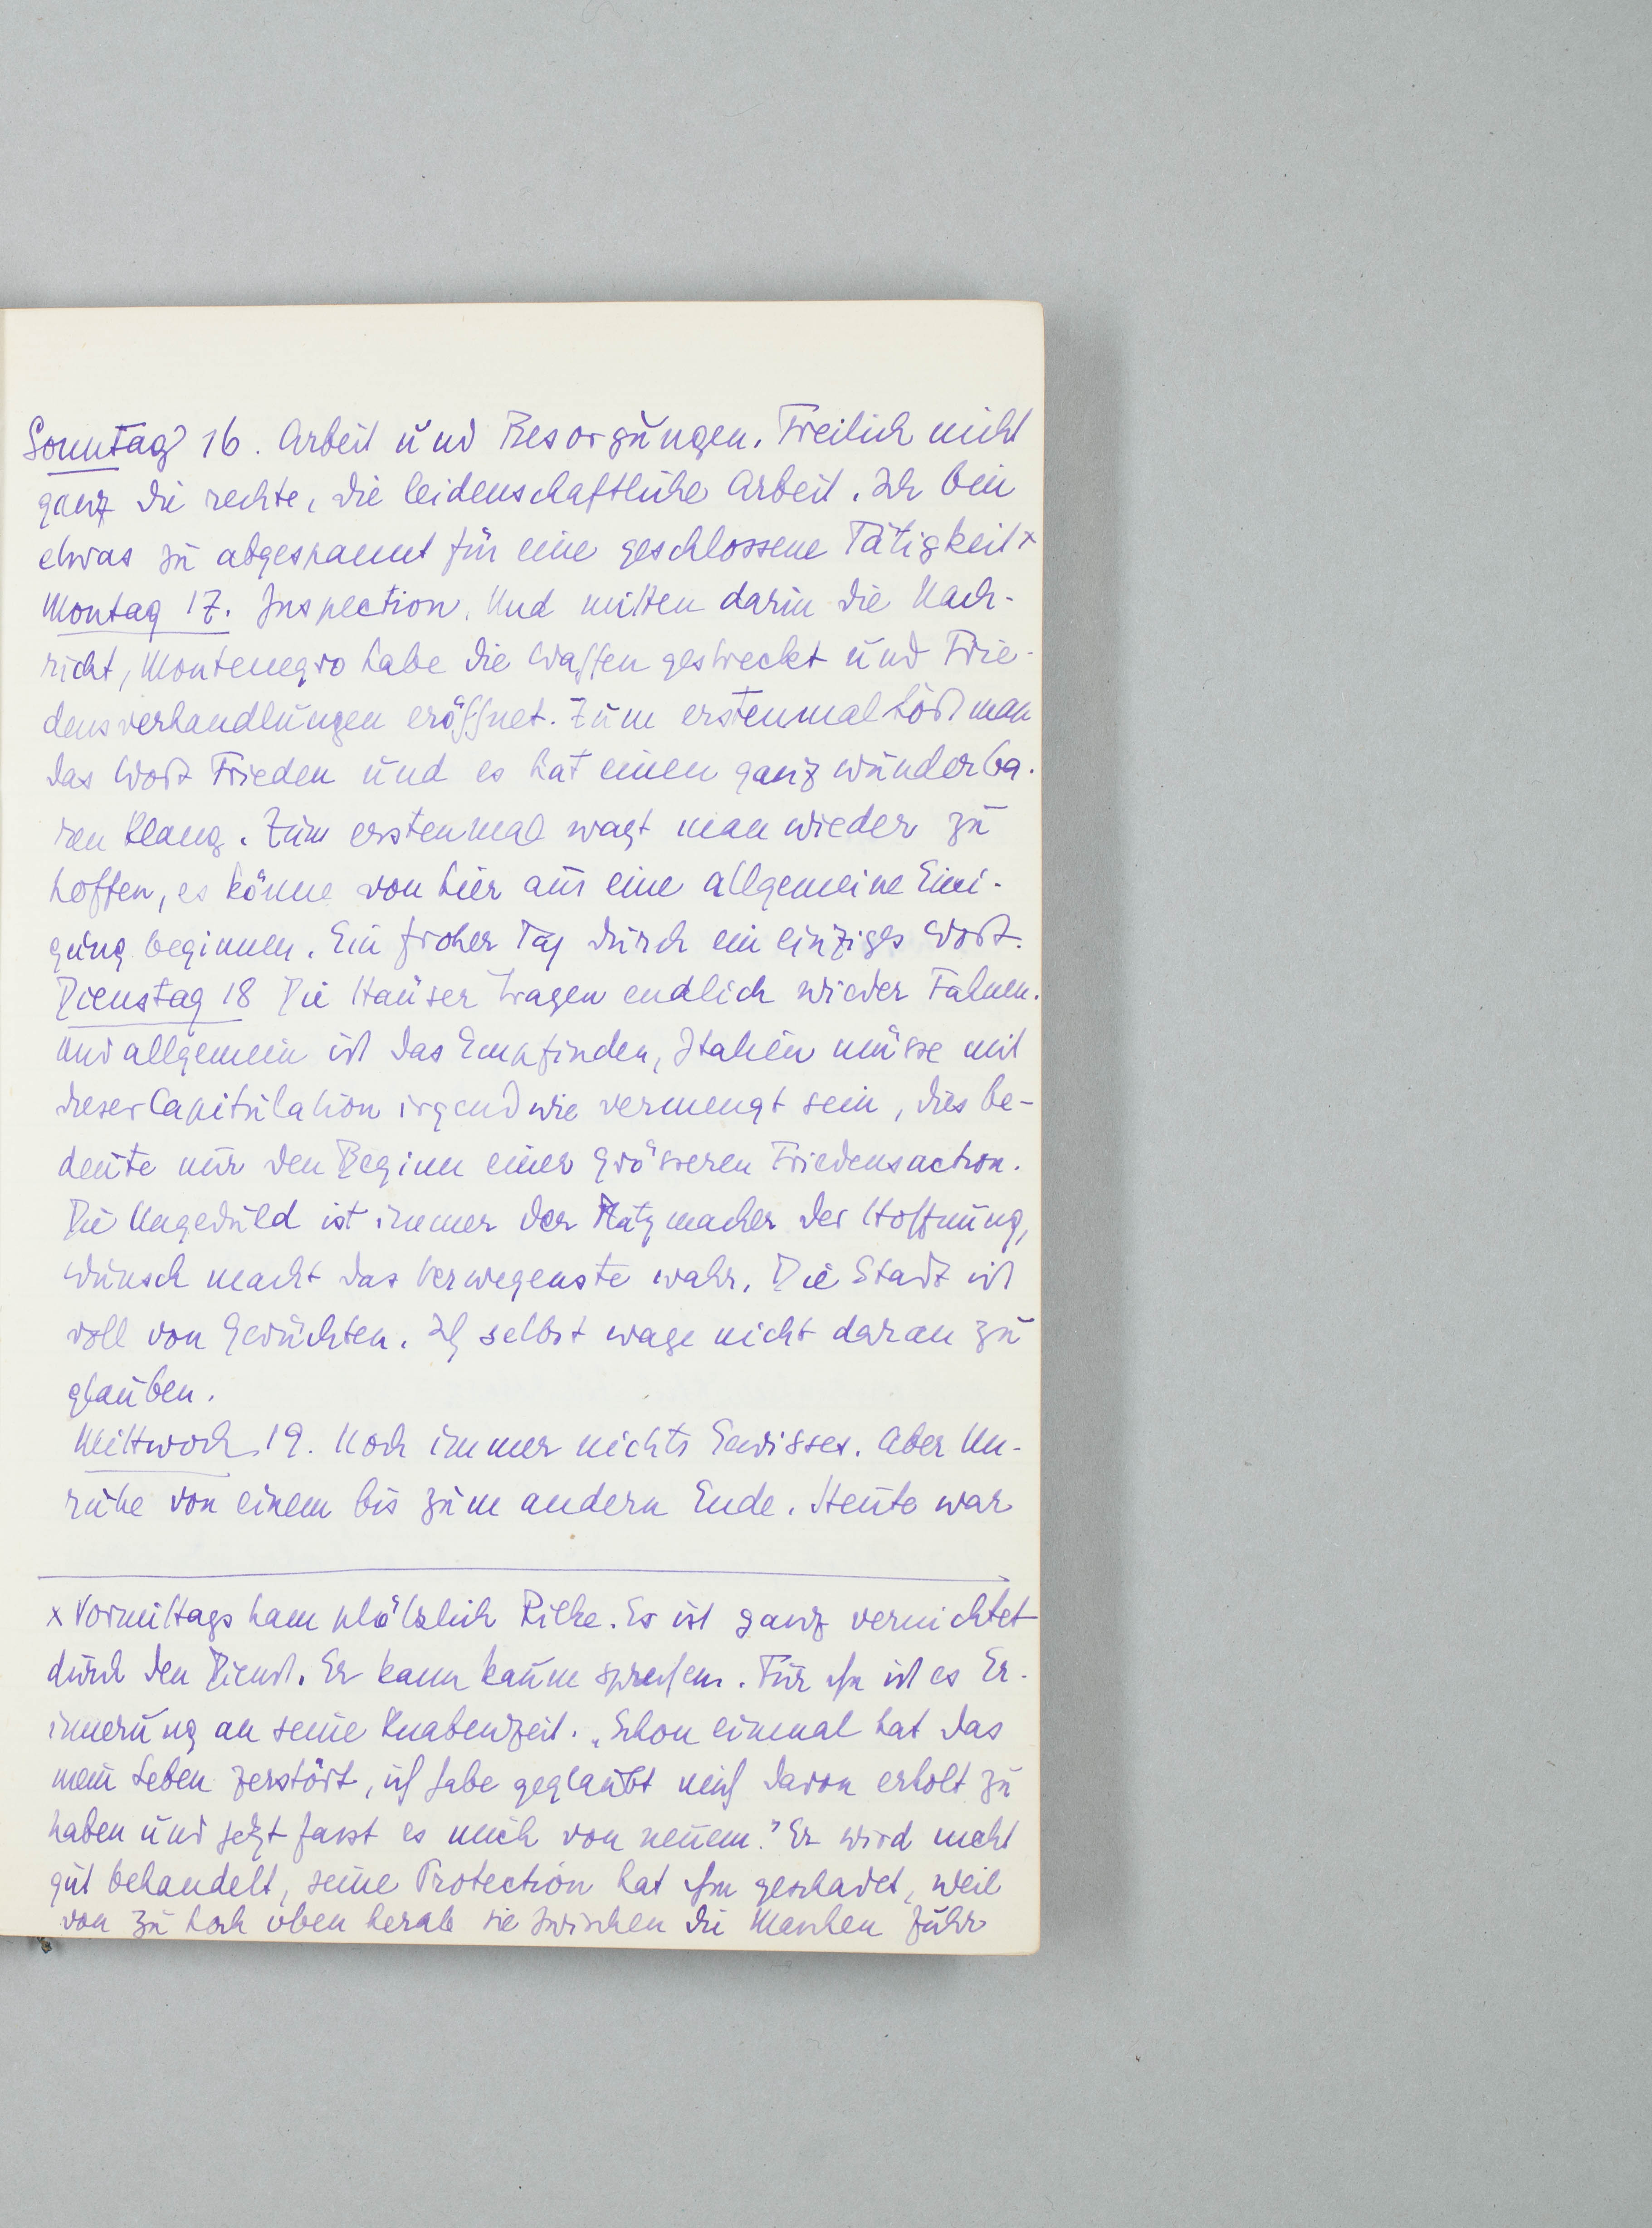 Sonntag 16. Arbeit und Besorgungen. Freilich nicht
ganz die rechte, die leidenschaftliche Arbeit. Ich bin
etwas zu abgespannt für eine geschlossene Tätigkeit x
Montag 17. Inspection. Und mitten darin die Nach-
richt, Montenegro habe die Waffen gestreckt und Frie-
densverhandlungen eröffnet. Zum erstenmal hört man
das Wort Frieden und es hat einen ganz wunderba-
ren Klang. Zum erstenmal wagt man wieder zu
hoffen, es könne von hier aus eine allgemeine Eini-
gung beginnen. Ein froher Tag durch ein einziges Wort.
Dienstag 18 Die Häuser tragen endlich wieder Fahnen.
Und allgemein ist das Empfinden, Italien müsse mit
dieser Capitulation irgendwie vermengt sein, dies be-
deute nur den Beginn einer grösseren Friedensaction.
Die Ungeduld ist immer der Platzmacher der Hoffnung,
Wunsch macht das Verwegenste wahr. Die Stadt ist
voll von Gerüchten. Ich selbst wage nicht daran zu
glauben.
Mittwoch 19. Noch immer nichts Gewisses. Aber Un-
ruhe von einem bis zum andern Ende. Heute war
x Vormittags kam plötzlich Rilke. Er ist ganz vernichtet
durch den Dienst. Er kann kaum sprechen. Für ihn ist es Er-
innerung an seine Knabenzeit. „Schon einmal hat das
mein Leben zerstört, ich habe geglaubt mich davon erholt zu
haben und jetzt fasst es mich von neuem." Er wird nicht
gut behandelt, seine Protection hat ihm geschadet, weil
von zu hoch oben herab sie zwischen die Maschen fuhr